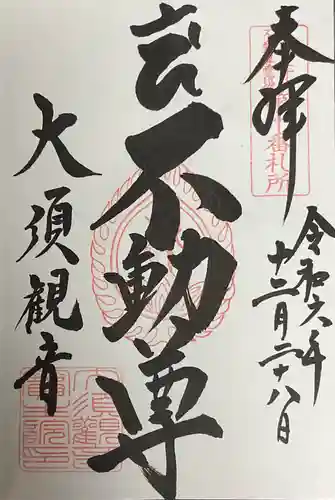 奉拝
番札所
令和六年
十二月二十八日
不動尊
大須観音